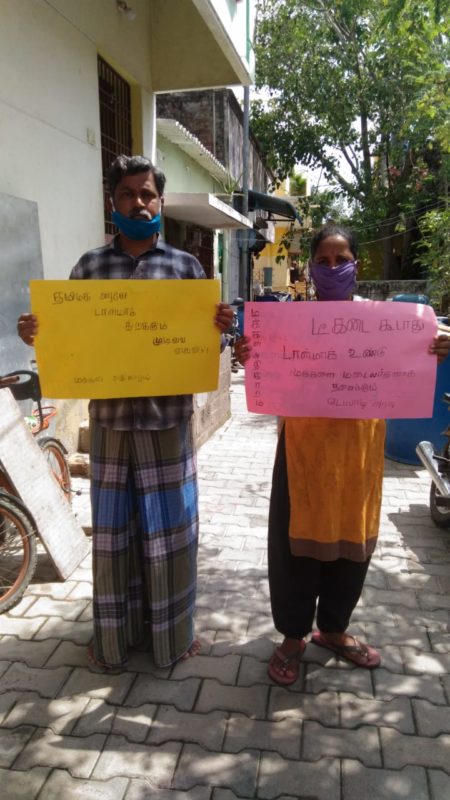 தமிழக அரசே
டாஸ்மாக்
திறக்கும்
முடிவை
மக்கள் அதிகாரம்
மக்கள் அதிகாரம்
டீ கடை கூடாது
டாஸ்மாக் உண்டு
மக்களை மடையர்களாக
நினைக்கும்
எடப்பாடி அரசு